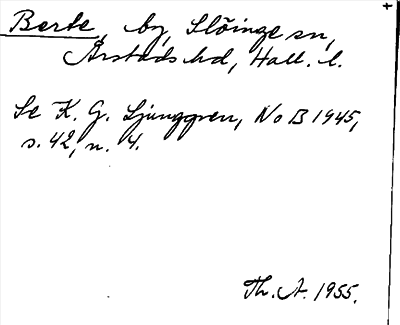 Berte, by, Slöinge sn,
Årstads hd, Hall. l.
Se K. G. Ljunggren, NoB 1945,
s. 42, n. 4.
Th. A. 1955.